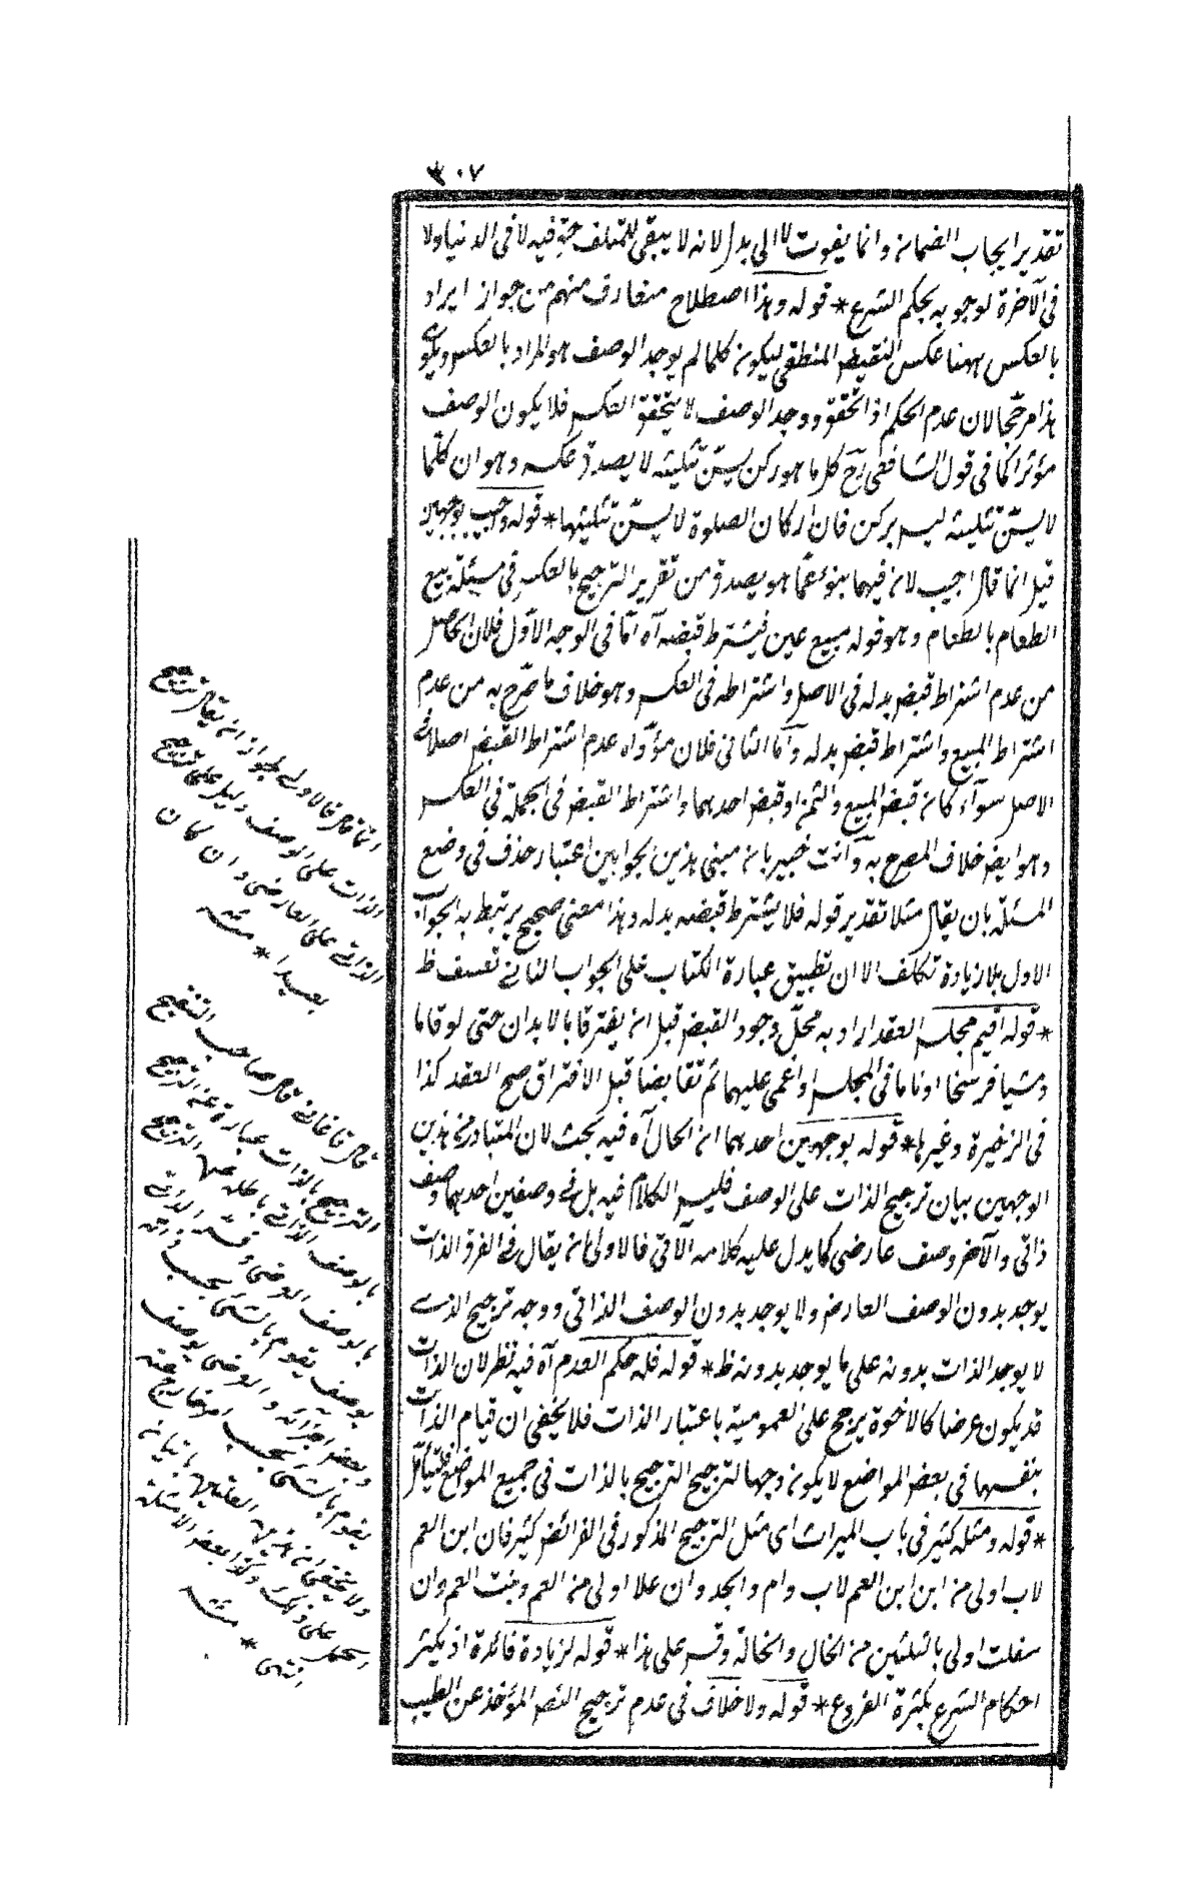 ٣٠٧
تقدير ايجاب الضمان وانما يفوت لا الى بدل لانه لا يبقى للمتلف حق فيه لا فى الدنيا ولا
فى الآخرة لوجوبه بحكم الشرع * قوله وهذا اصطلاح متعارف منهم من جواز ايراد
بالعكس ههنا عكس النقيض المنطقى ليكون كلما لم يوجد الوصف هو المراد بالعكس ويكون
هذا مرجحا لان عدم الحكم اذا تحقق ووجد الوصف لا يتحقق العكس فلا يكون الوصف
مؤثرا كما فى قول الشافعى رح كل ما هو ركن يسنّ تثليثه لا يصدق عكسه وهو ان كلّما
لا يسنّ تثليثه ليس بركن فان اركان الصلوة لا يسنّ تثليثها * قوله وجيب بوجهين
قيل انما قال اجيب لان فيهما بنوء عمّا هو بصدق من تقرير الترجيح بالعكس فى مسئلة بيع
الطعام بالطعام وهو قوله مبيع عين فيشترط قبضه آه امّا فى الوجه الاوّل فلان الحاصل
من عدم اشتراط قبض بدله فى الاصل واشتراطه فى العكس وهو خلاف ما صرّح به من عدم
اشتراط المبيع واشتراط قبض بدله وامّا الثانى فلان مؤدّاه عدم اشتراط القبض اصلا فى
الاصل سوآء كان قبض المبيع والثمن او قبض احدهما واشتراط القبض فى الجملة فى العكس
وهو ايض خلاف المصرح به وانت خبير بان مبنى هذين الجوابين اعتبار حذف فى وضع
المسئلة بان يقال مثلا تقدير قوله فلا يشترط قبضه بدله وهذا معنى صحيح يرتبط به الجواب
الاول بلا زيادة تكلف الا ان تطبيق عبارة الكتاب على الجواب الثانى تعسف ظ
* قوله اقيم مجلس العقد اراد به محلّ وجود القبض قبل ان يفترقا بالابدان حتى لو قاما
ومشيا فرسخا او ناما فى المجلس او اغمى عليهما ثم تقابضا قبل الافتراق صح العقد كذا
فى الذخيرة وغيرها * قوله بوجهين احدهما ان الحال آه فيه بحث لان المتبادر من هذين
الوجهين بيان ترجيح الذات على الوصف فليس الكلام فيه بل فى وصفين احدهما وصف
ذاتى والآخر وصف عارضى كما يدل عليه كلامه الآتى فالاولى ان يقال فى الفرق الذات
يوجد بدون الوصف العارض ولا يوجد بدون الوصف الذاتى ووجه ترجيح الذى
لا يوجد الذات بدونه على ما يوجد بدونه ظ * قوله فله حكم العدم آه فيه نظر لان الذات
قد يكون عرضا كالاخوة يرجح على العمومية باعتبار الذات فلا يخفى ان قيام الذات
بنفسها فى بعض المواضع لا يكون وجها لترجيح الترجيح بالذات فى جميع المواضع فليتأمّل
* قوله ومثله كثير فى باب الميراث اى مثل الترجيح المذكور فى الفرائض كثير فان ابن العم
لاب اولى من ابن ابن العم لاب وام والجد وان علا اولى من العم وبنت العم وان
سفلت اولى بالثلثين من الخال والخالة وقس على هذا * قوله لزيادة فائدة اذ يكثر
احكام الشرع بكثرة الفروع * قوله ولا خلاف فى عدم ترجيح النص المؤخذ عن الطيب
انما قال فالاولى لجواز ان يقال ترجيح
الذات على الوصف دليل على ترجيح
الذاتى على العارضى وان كان
بعيدا * منه
قال قاغانى قال صاحب التنقيح
الترجيح بالذات عبارة عن الترجيح
بالوصف الذاتى بالحال عن الترجيح
بالوصف العرضى وفسر الذاتى
بوصف يقوم بالشئ بحسب ذاته
وبعض اجزائه والعرضى بوصف
يقوم بالشئ بحسب امر خارج عنه
ولا يخفى ان هذين
على ذلك وكذا بعض الامثلة
انتهى * منه